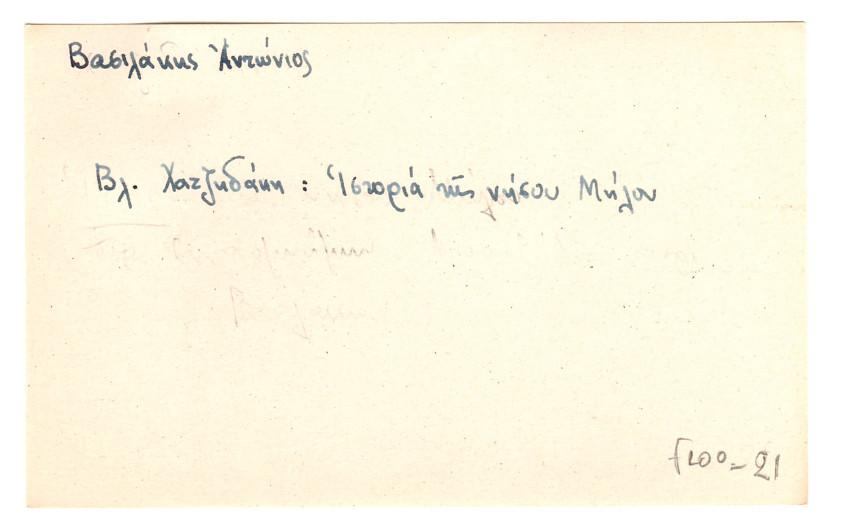 Βασιλάκης Ἀντώνιος
Βλ. Χατζηδάκη : Ἱστοριά τῆς νήσου Μήλου